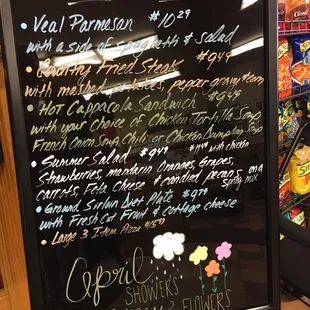 • Veal Parmesan $10.29
with a side of spaghetti & salad
• Country Fried Steak $9.49
with mashed potatoes, pepper gravy & corn
• Hot Cappacola Sandwich $9.49
with your choice of Chicken Tortilla Soup
French Onion Soup, Chili or Chicken Dumpling Soup
• Summer Salad $9.49 with chicken
Strawberries, mandarin Oranges, Grapes,
Carrots, Feta Cheese & candied pecans on a
Spring mix
• Ground Sirloin Diet Plate
with Fresh Cut Fruit & Cottage cheese
• Large 3 Item Pizza
April
Showers
Flowers